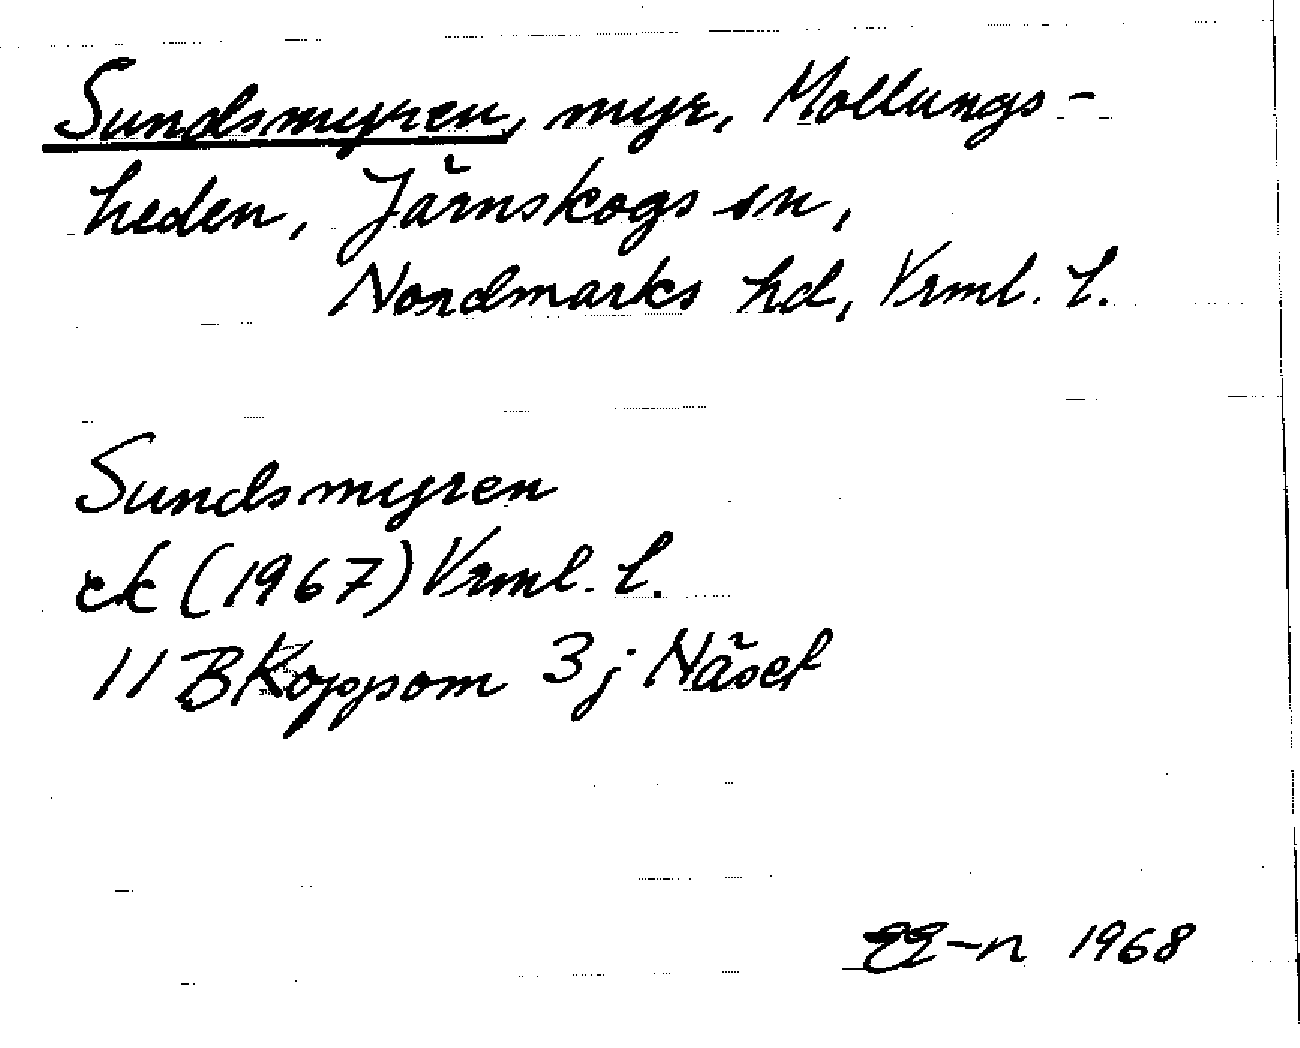 Sundsmyren, myr, Mollungs-
heden, Järnskogs sn,
Nordmarks hd, Vrml. l.
Sundsmyren
ek (1967) Vrml. l.
11 B Koppom 3 j Näset
EE-n 1968